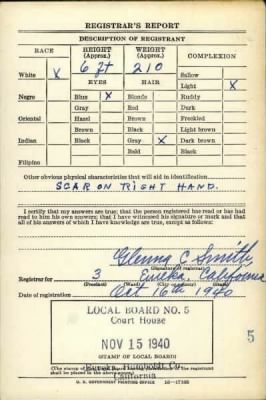 REGISTRAR'S REPORT
DESCRIPTION OF REGISTRANT
RACE HEIGHT (Approx.) WEIGHT (Approx.) COMPLEXION
6 ft 210 Sallow
White X EYES HAIR Light X
Negro Blue X Blonde Ruddy
Gray Red Dark
Oriental Hazel Brown Freckled
Brown Black Light brown
Indian Black Gray X Dark brown
Bald Black
Filipino
Other obvious physical characteristics that will aid in identification
SCAR ON RIGHT HAND.
I certify that my answers are true; that the person registered has read or has had
read to him his own answers; that I have witnessed his signature or mark and that
all of his answers of which I have knowledge are true, except as follows:
Glenna C Smith
(Signature of registrar)
Registrar for 3 Eureka, California
(Precinct) (Ward) (City or county) (State)
Date of registration Oct 16th 1940
LOCAL BOARD NO. 5
Court House
NOV 15 1940
(STAMP OF LOCAL BOARD)
Eureka, Humboldt Co.
California
(The stamp of the Local Board
shall be placed in the above space.)
U. S. GOVERNMENT PRINTING OFFICE 16-17105
5